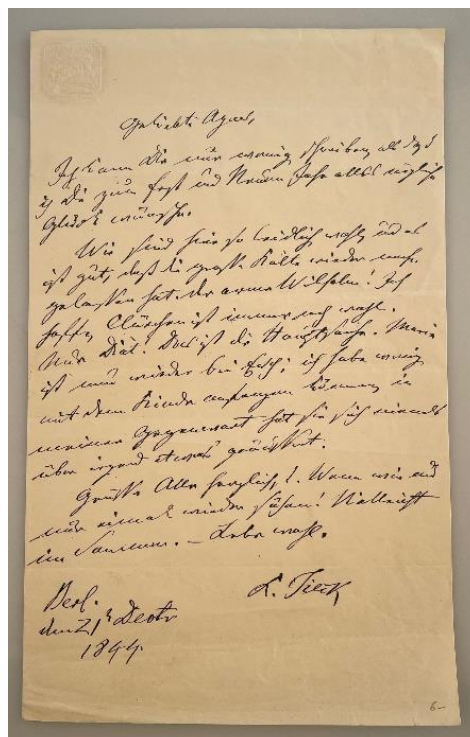 Geliebte Agnes,
Ich kann Dir nur wenig schreiben, als daß
ich Dir zum Fest und Neuen Jahr alles mögliche
Glück wünsche.
Wir sind hier so leidlich wohl, und es
ist gut, daß die große Kälte wieder nach-
gelassen hat. Der arme Wilhelm! Ich
hoffe, Clärchen ist immer noch wohl.
Nur Diät. Das ist die Hauptsache. Marie
ist nun wieder bei Euch; ich habe wenig
mit dem Kinde anfangen können, in
meiner Gegenwart hat sie sich niemals
über irgend etwas geäußert.
Grüße Alle herzlich. Wenn wir uns
nur einmal wieder sähen! Vielleicht
im Sommer. — Lebe wohl.
L. Tieck
Berl.
den 21
1844.
6–